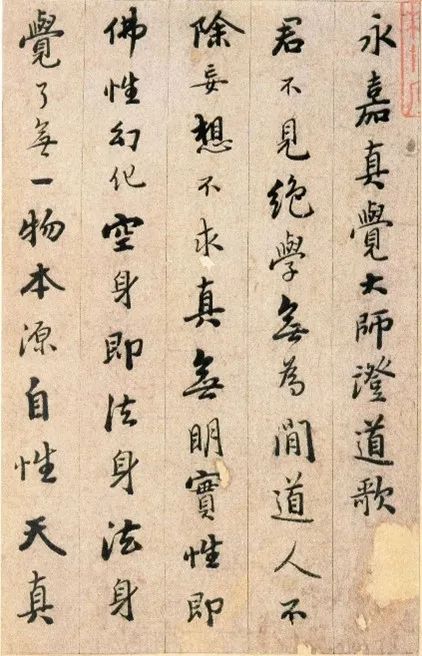 永嘉真覺大師證道歌
君不見絕學無為閒道人不
除妄想不求真無明實性即
佛性幻化空身即法身法身
覺了無一物本源自性天真